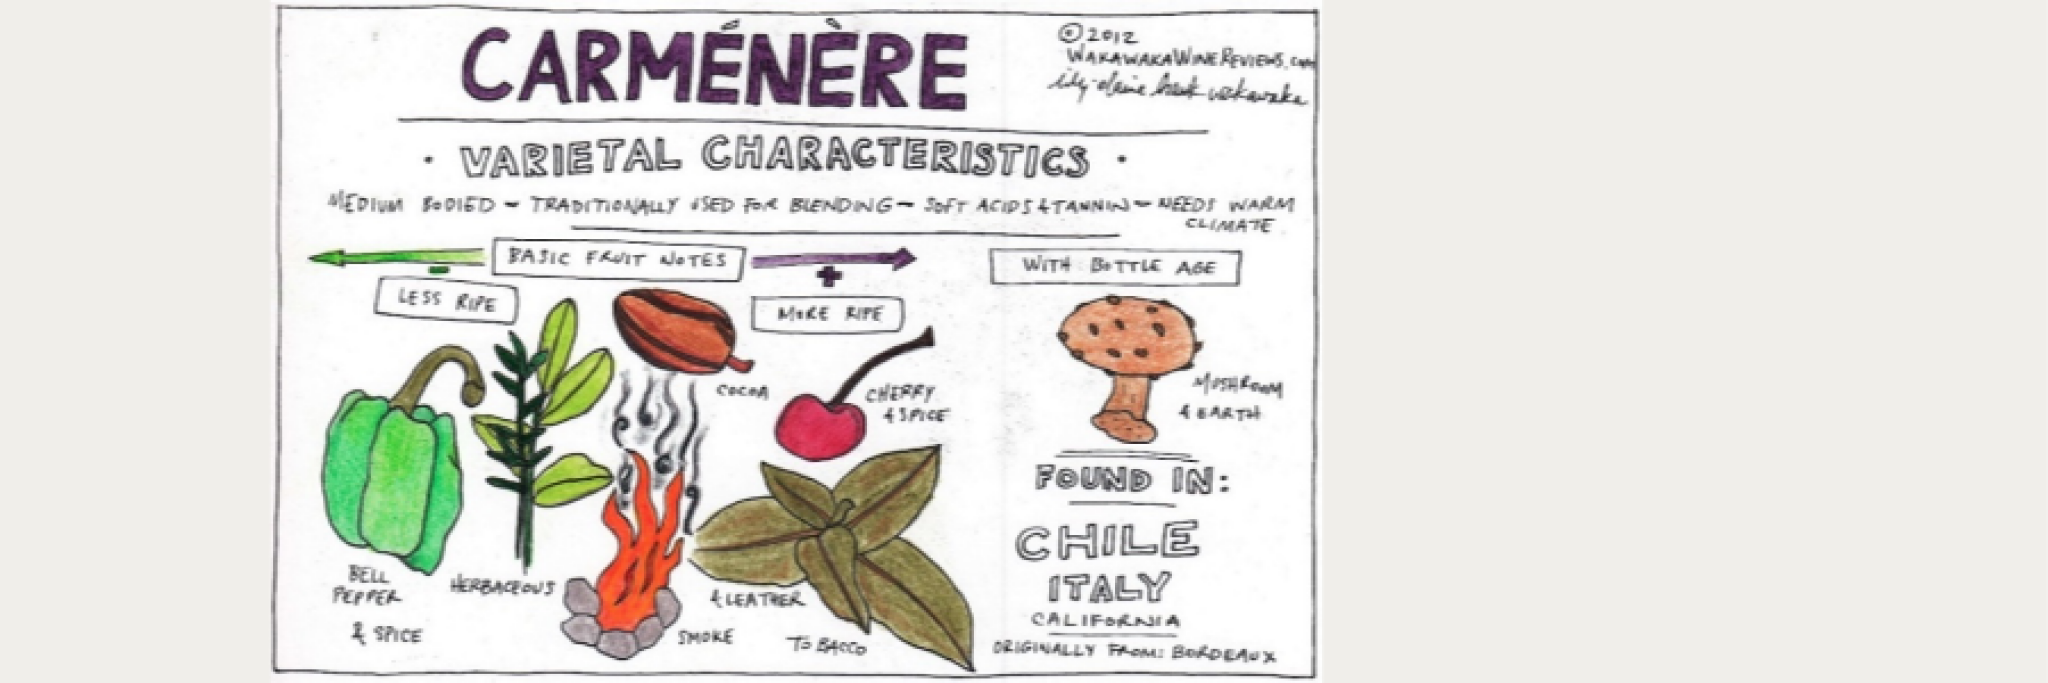 CARMÉNÈRE
© 2012
WAKAWAKAWINEREVIEWS.COM
· VARIETAL CHARACTERISTICS ·
MEDIUM BODIED ~ TRADITIONALLY USED FOR BLENDING ~ SOFT ACIDS & TANNIN ~ NEEDS WARM
CLIMATE
BASIC FRUIT NOTES
WITH BOTTLE AGE
-
+
LESS RIPE
MORE RIPE
COCOA
CHERRY
& SPICE
MUSHROOM
& EARTH
FOUND IN:
CHILE
ITALY
CALIFORNIA
ORIGINALLY FROM: BORDEAUX
BELL
PEPPER
& SPICE
HERBACEOUS
SMOKE
& LEATHER
TOBACCO